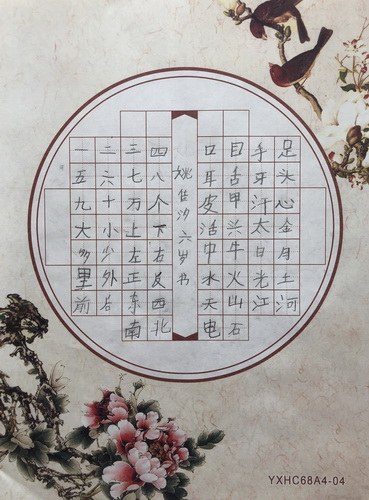 一二三四
五六七八
九十万个
大小上下
多少左右
里外正反
前后东西
南北
姚佳汐六岁书
口目手足
耳舌牙头
皮甲汗心
活兴太金
中牛日月
水火光土
天山江河
电石
YXHC68A4-04